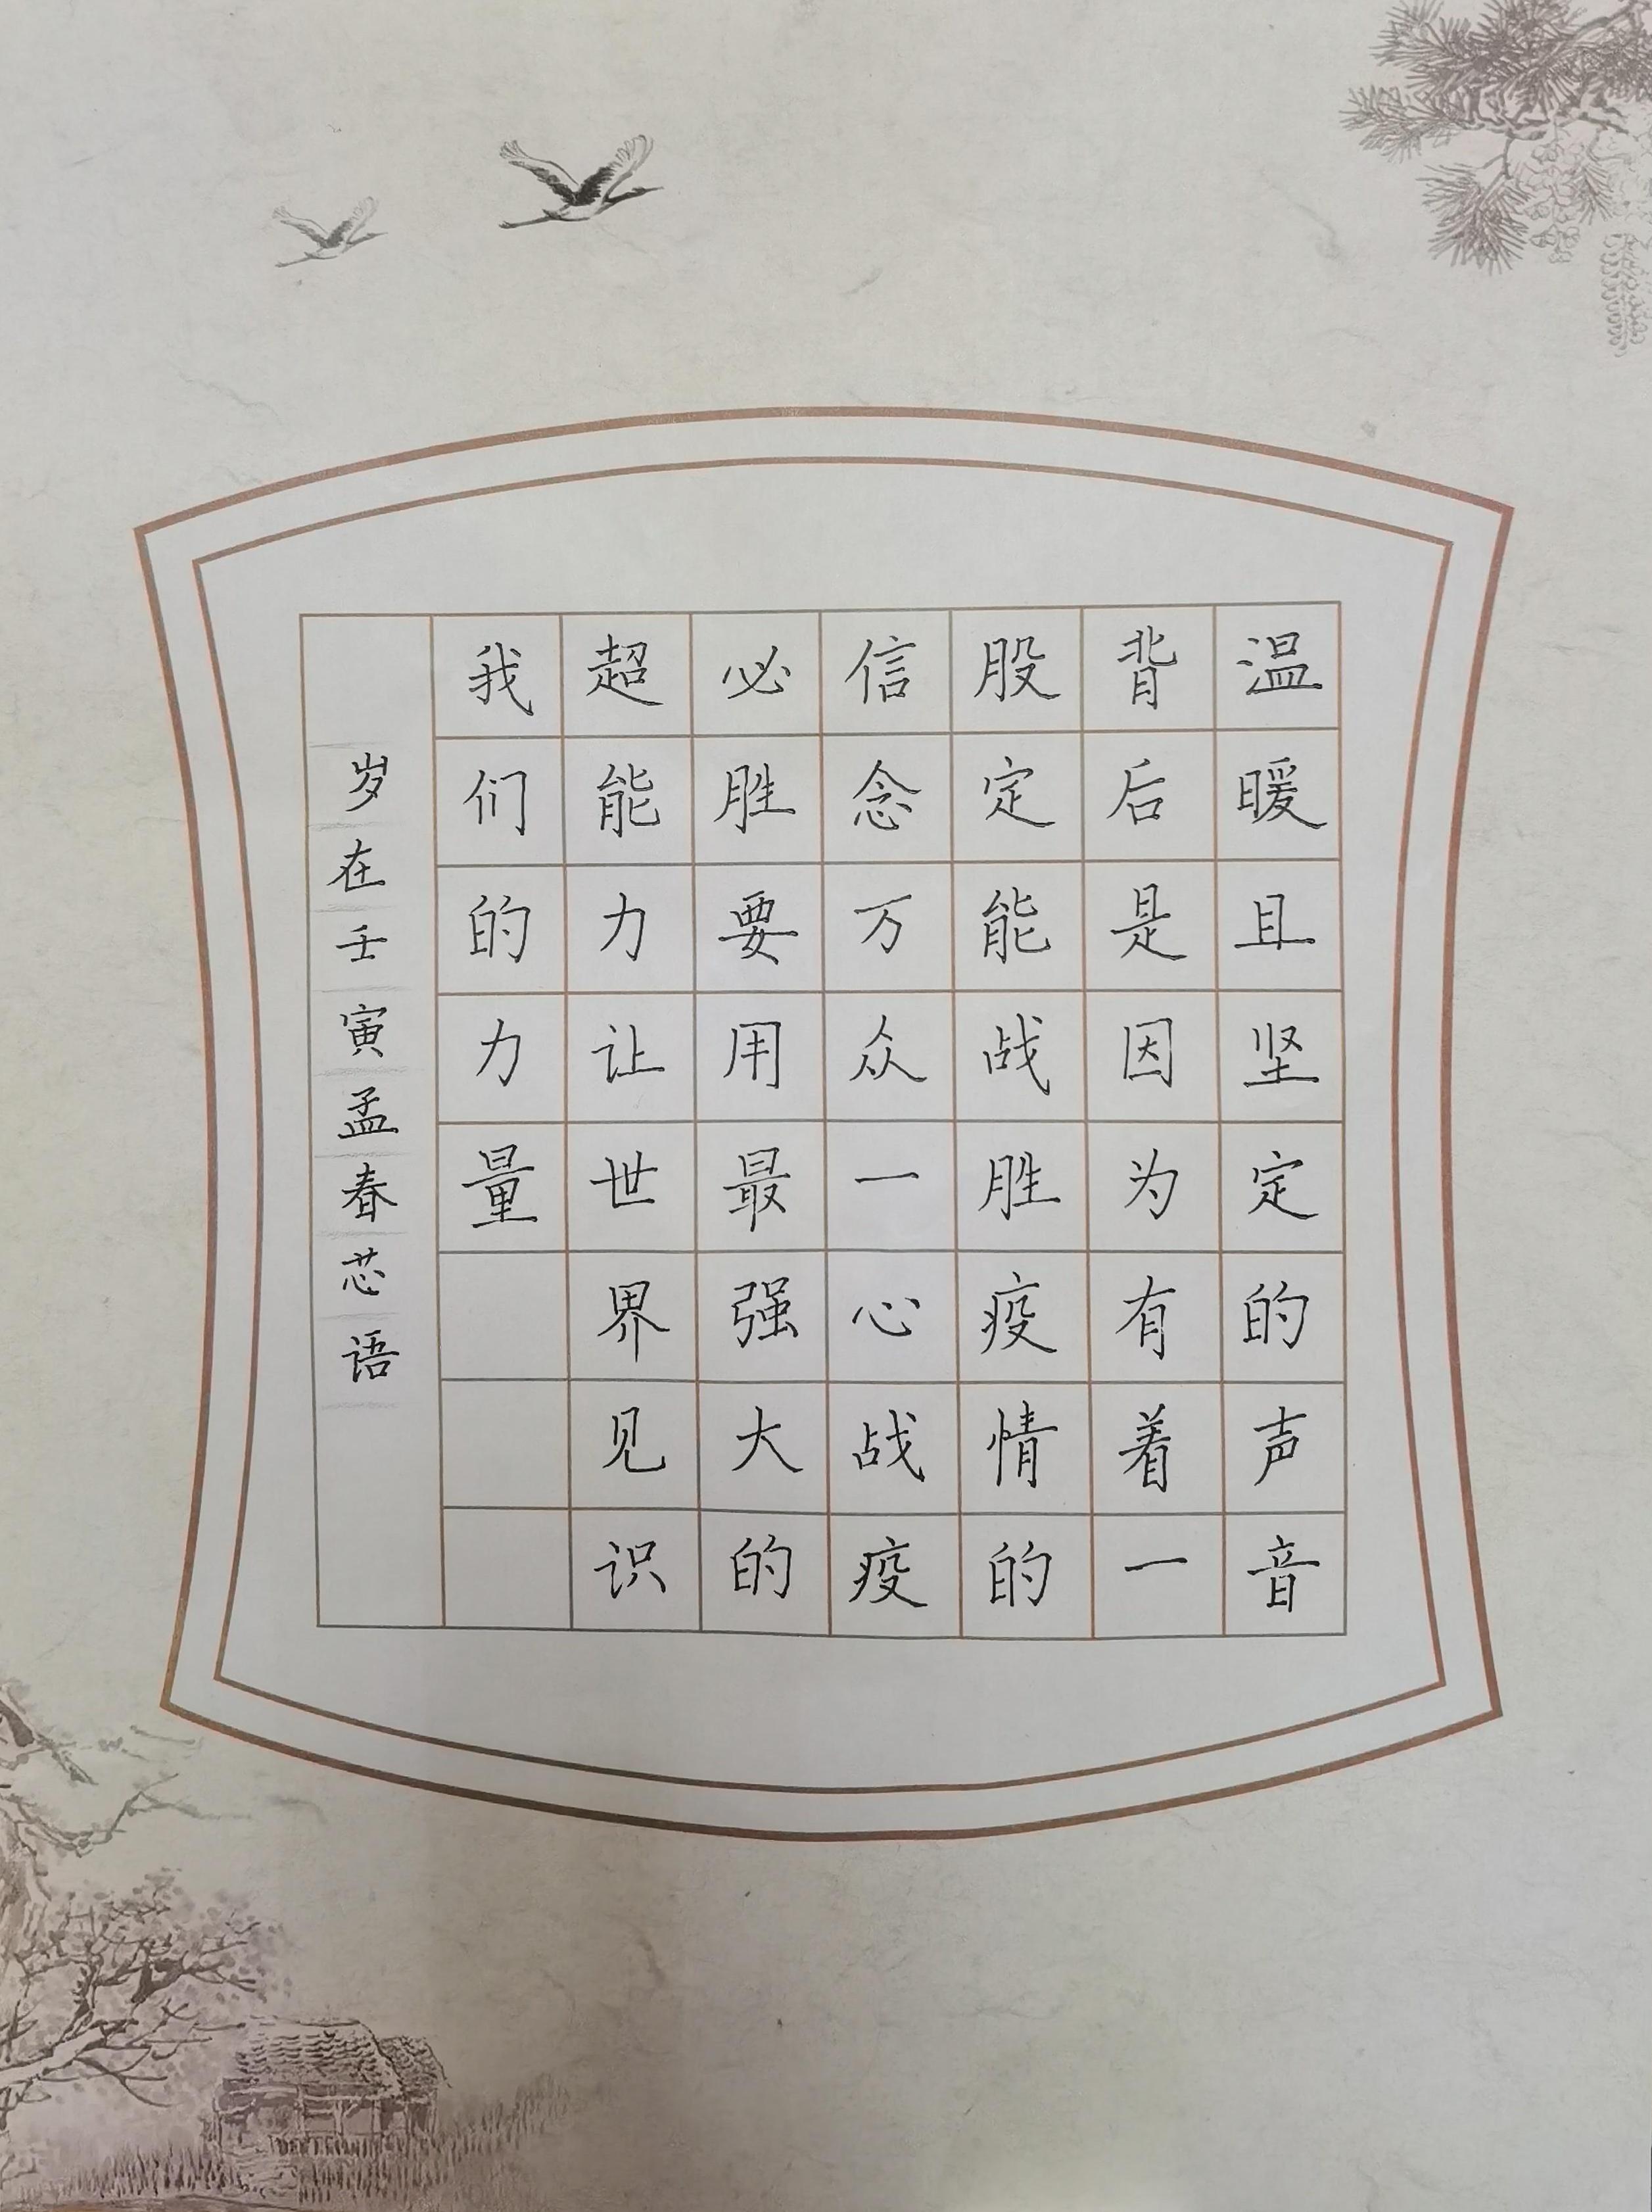 温暖且坚定的声音
背后是因为有着一
股定能战胜疫情的
信念万众一心战疫
必胜要用最强大的
超能力让世界见识
我们的力量
岁在壬寅孟春芯语